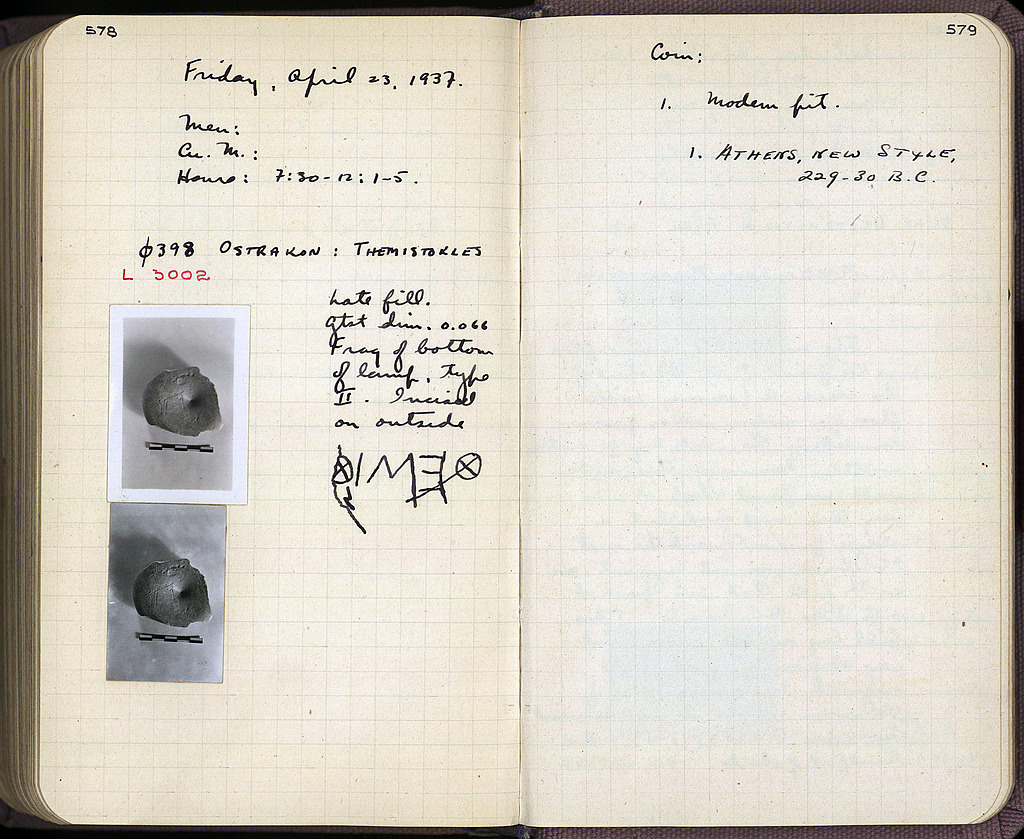 578
Friday, April 23, 1937.
Men:
Cu. M.:
Hours: 7:30-12; 1-5.
φ398 OSTRAKON: THEMISTOKLES
L 3002
Late fill.
Gtst dim. 0.066
Frag of bottom
of lamp, type
II. Incised
on outside
579
Coin:
1. Modern pit.
1. ATHENS, NEW STYLE,
229-30 B.C.